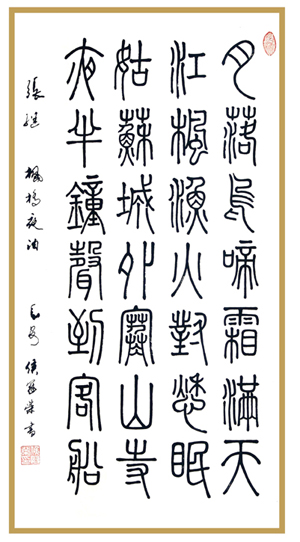 月落烏啼霜滿天
江楓漁火對愁眠
姑蘇城外寒山寺
夜半鐘聲到客船
張继 楓橋夜泊 侯 書